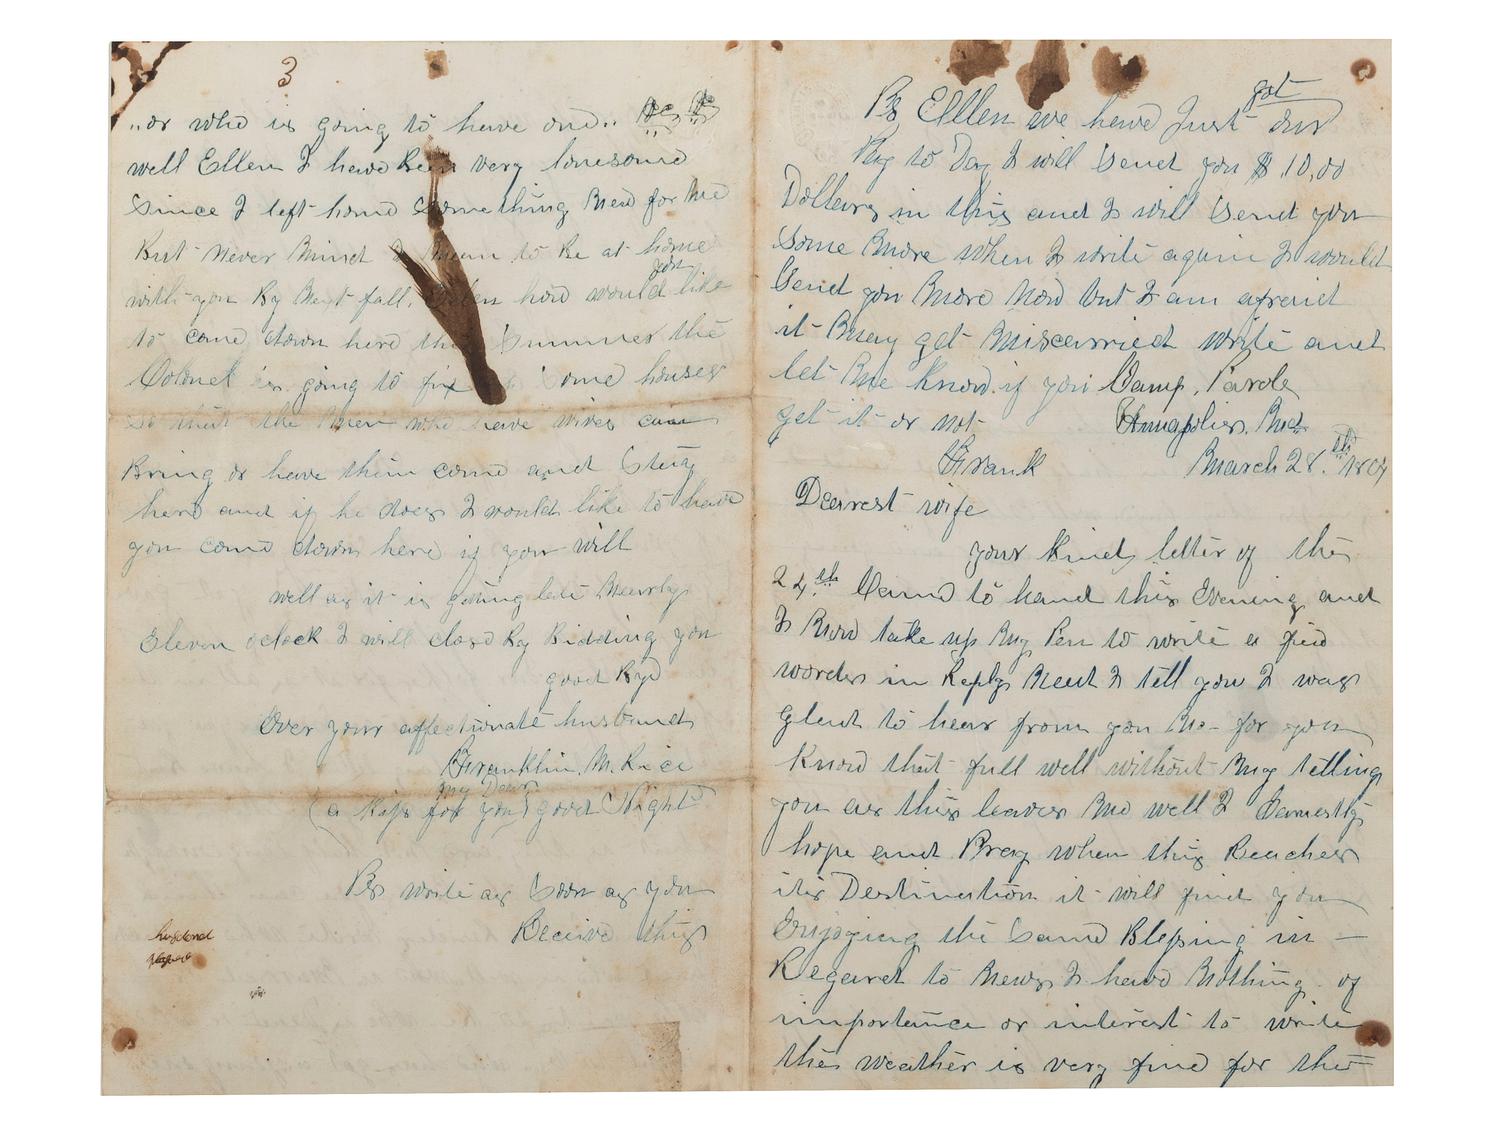 3
"or who is going to have one" 
well Ellen I have Been very lonesome
Since I left home Something New for Me
But never Mind I Mean to Be at home
with you By Next fall. Ellen how would you like
to come down here this Summer the
Colonel is going to fix up some houses
So that the Men who have wives can
Bring or have them come and Stay
here and if he does I would like to have
you come down here if you will
well as it is getting late Nearly
Eleven oclock I will close By Bidding you
good Bye
Ever your affectionate husband
Franklin. M. Rice
(a Kiss for you my Dear) good Night
Ps write as Soon as you
Receive this
husband
Ps Ellen we have Just got our
Pay to Day I will Send you $ 10,00
Dollars in this and I will Send you
Some More when I write again I would
Send you More Now but I am afraid
it May get Miscarried write and
let Me Know if you
get it or not
Frank
Camp. Parole
Annapolis. Md.
March 28.th 1864
Dearest wife
your Kind letter of the
24.th Came to hand this Evening and
I Now take up My Pen to write a few
words in Reply Need I tell you I was
Glad to hear from you No - for you
Know that full well without My telling
you as this leaves Me well I Earnestly
hope and Pray when this Reaches
its Destination it will find you
Enjoying the Same Blessing in -
Regard to News I have Nothing of
importance or interest to write
the weather is very fine for the